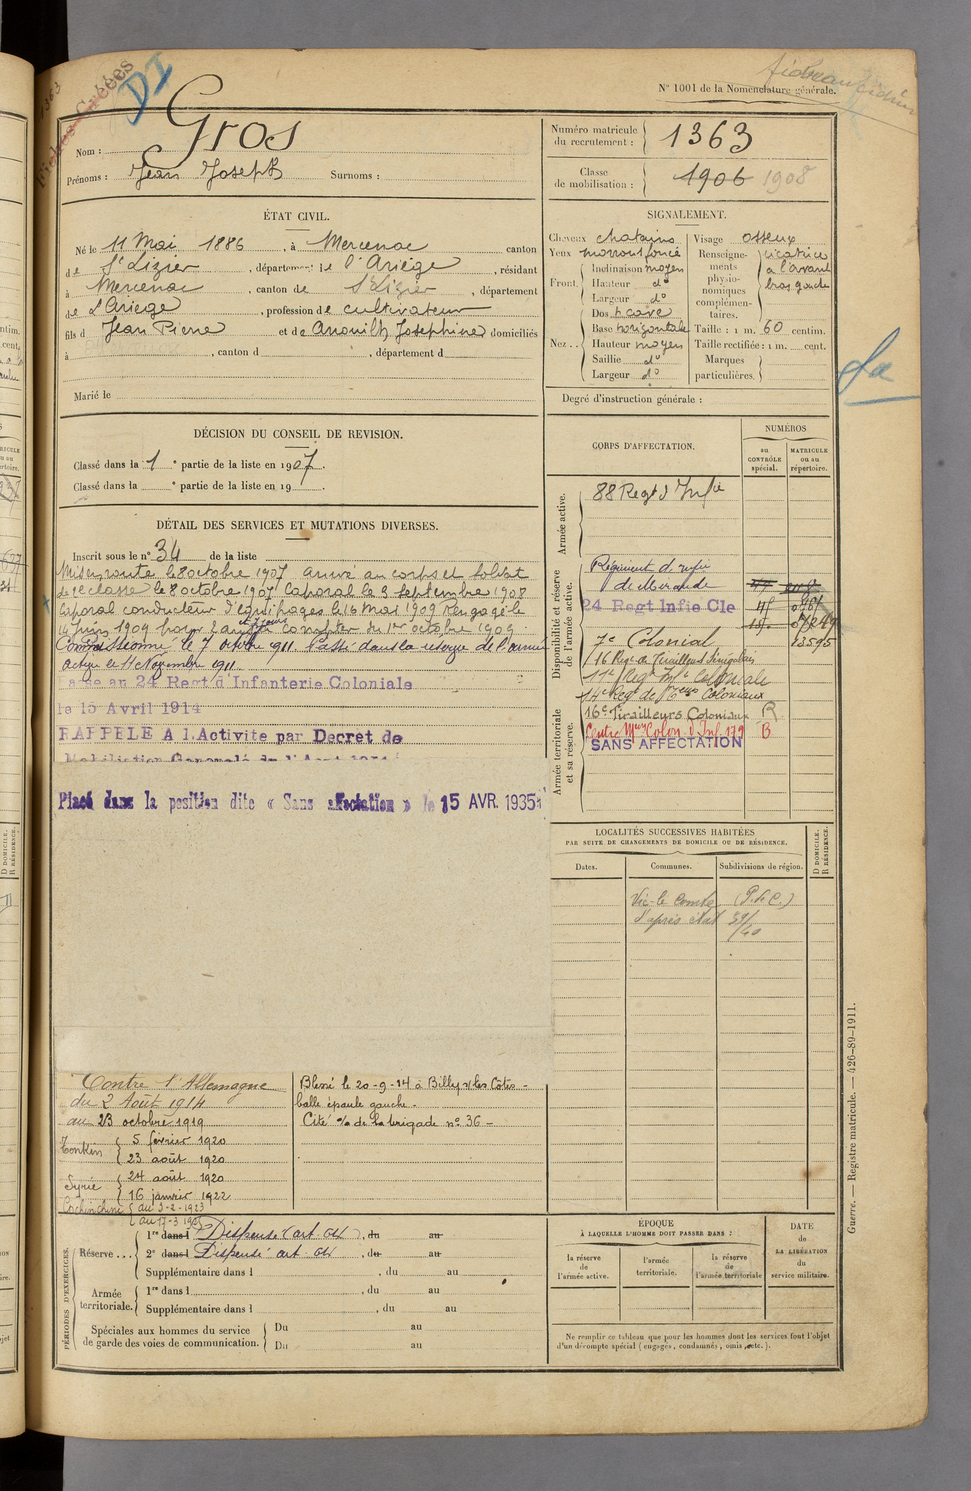 Fiches Créées
DI
N° 1001 de la Nomenclature générale.
Nom : Gros
Prénoms : Jean Joseph Surnoms :
Numéro matricule du recrutement : 1363
Classe de mobilisation : 1906 1908
ÉTAT CIVIL.
Né le 11 Mai 1886, à Mercenac canton
de St Lizier, département de l'Ariège, résidant
à Mercenac, canton de St Lizier, département
de l'Ariège, profession de cultivateur
fils d Jean Pierre et de Anouilh Josephine domiciliés
à , canton d , département d
Marié le
SIGNALEMENT.
Cheveux chatains
Yeux marron foncé
Front. Inclinaison moyen
Hauteur do
Largeur do
Nez.. Dos cave
Base horizontale
Hauteur moyen
Saillie do
Largeur do
Visage osseux
Renseignements physionomiques complémentaires. cicatrice
à l'avant
bras gauche
Taille : 1 m. 60 centim.
Taille rectifiée : 1 m. cent.
Marques particulières.
Degré d'instruction générale :
DÉCISION DU CONSEIL DE REVISION.
Classé dans la 1e partie de la liste en 1907.
Classé dans la e partie de la liste en 19 .
DÉTAIL DES SERVICES ET MUTATIONS DIVERSES.
Inscrit sous le n° 34 de la liste
Mis en route le 8 octobre 1907 arrivé au corps et soldat
de 2e classe le 8 octobre 1907 Caporal le 3 septembre 1908
Caporal conducteur d'équipages le 16 Mai 1909 Rengagé le
14 Juin 1909 pour 2 ans et jours à compter du 1er octobre 1909
le 7 octobre 1911. Passé dans la réserve de l'armée
active le 11 Novembre 1911.
Passé au 24 Regt d'Infanterie Coloniale
le 15 Avril 1914
RAPPELE A l.Activite par Decret de
Mobilisation Generale du 1 Aout 1914
Placé dans la position dite « Sans affectation » le 15 AVR. 1935
Contre l'Allemagne
du 2 Août 1914
au 23 octobre 1919
Tonkin 5 février 1920
23 août 1920
Syrie 24 août 1920
16 janvier 1922
Cochinchine du 3-2-1923
au 17-3 1925
Blessé le 20-9-14 à Billy s/les Côtes -
balle épaule gauche -
Cité % de la brigade n° 36 -
CORPS D'AFFECTATION.
NUMÉROS
au CONTRÔLE spécial.
MATRICULE ou au répertoire.
Armée active.
88 Regt d'Infie
Disponibilité et réserve de l'armée active.
Régiment d'infie
de Mirande
24 Regt Infie Cle
7e Colonial 13595
16 Regt de Tirailleurs Sénégalais
11e Regt Infie Coloniale
Armée territoriale et sa réserve.
14e Regt de Coloniaux
16e Tirailleurs Coloniaux R
Centre Colon. d'Inf. 179 B
SANS AFFECTATION
LOCALITÉS SUCCESSIVES HABITÉES
PAR SUITE DE CHANGEMENTS DE DOMICILE OU DE RÉSIDENCE.
Dates. Communes. Subdivisions de région.
D DOMICILE.
R RÉSIDENCE.
Vic-le Comte (P. de C.)
d'après état 39/40
PÉRIODES D'EXERCICES.
Réserve... 1re dans l Dispensé (art , du au
2e dans l Dispensé art , du au
Supplémentaire dans l , du au
Armée territoriale. 1re dans l , du au
Supplémentaire dans l , du au
Spéciales aux hommes du service de garde des voies de communication. Du au
Du au
ÉPOQUE
À LAQUELLE L'HOMME DOIT PASSER DANS :
la réserve de l'armée active.
l'armée territoriale.
la réserve de l'armée territoriale
DATE de LA LIBÉRATION du service militaire.
Ne remplir ce tableau que pour les hommes dont les services font l'objet
d'un décompte spécial (engagés, condamnés, omis, etc.).
Guerre. — Registre matricule. — 426-89-1911.